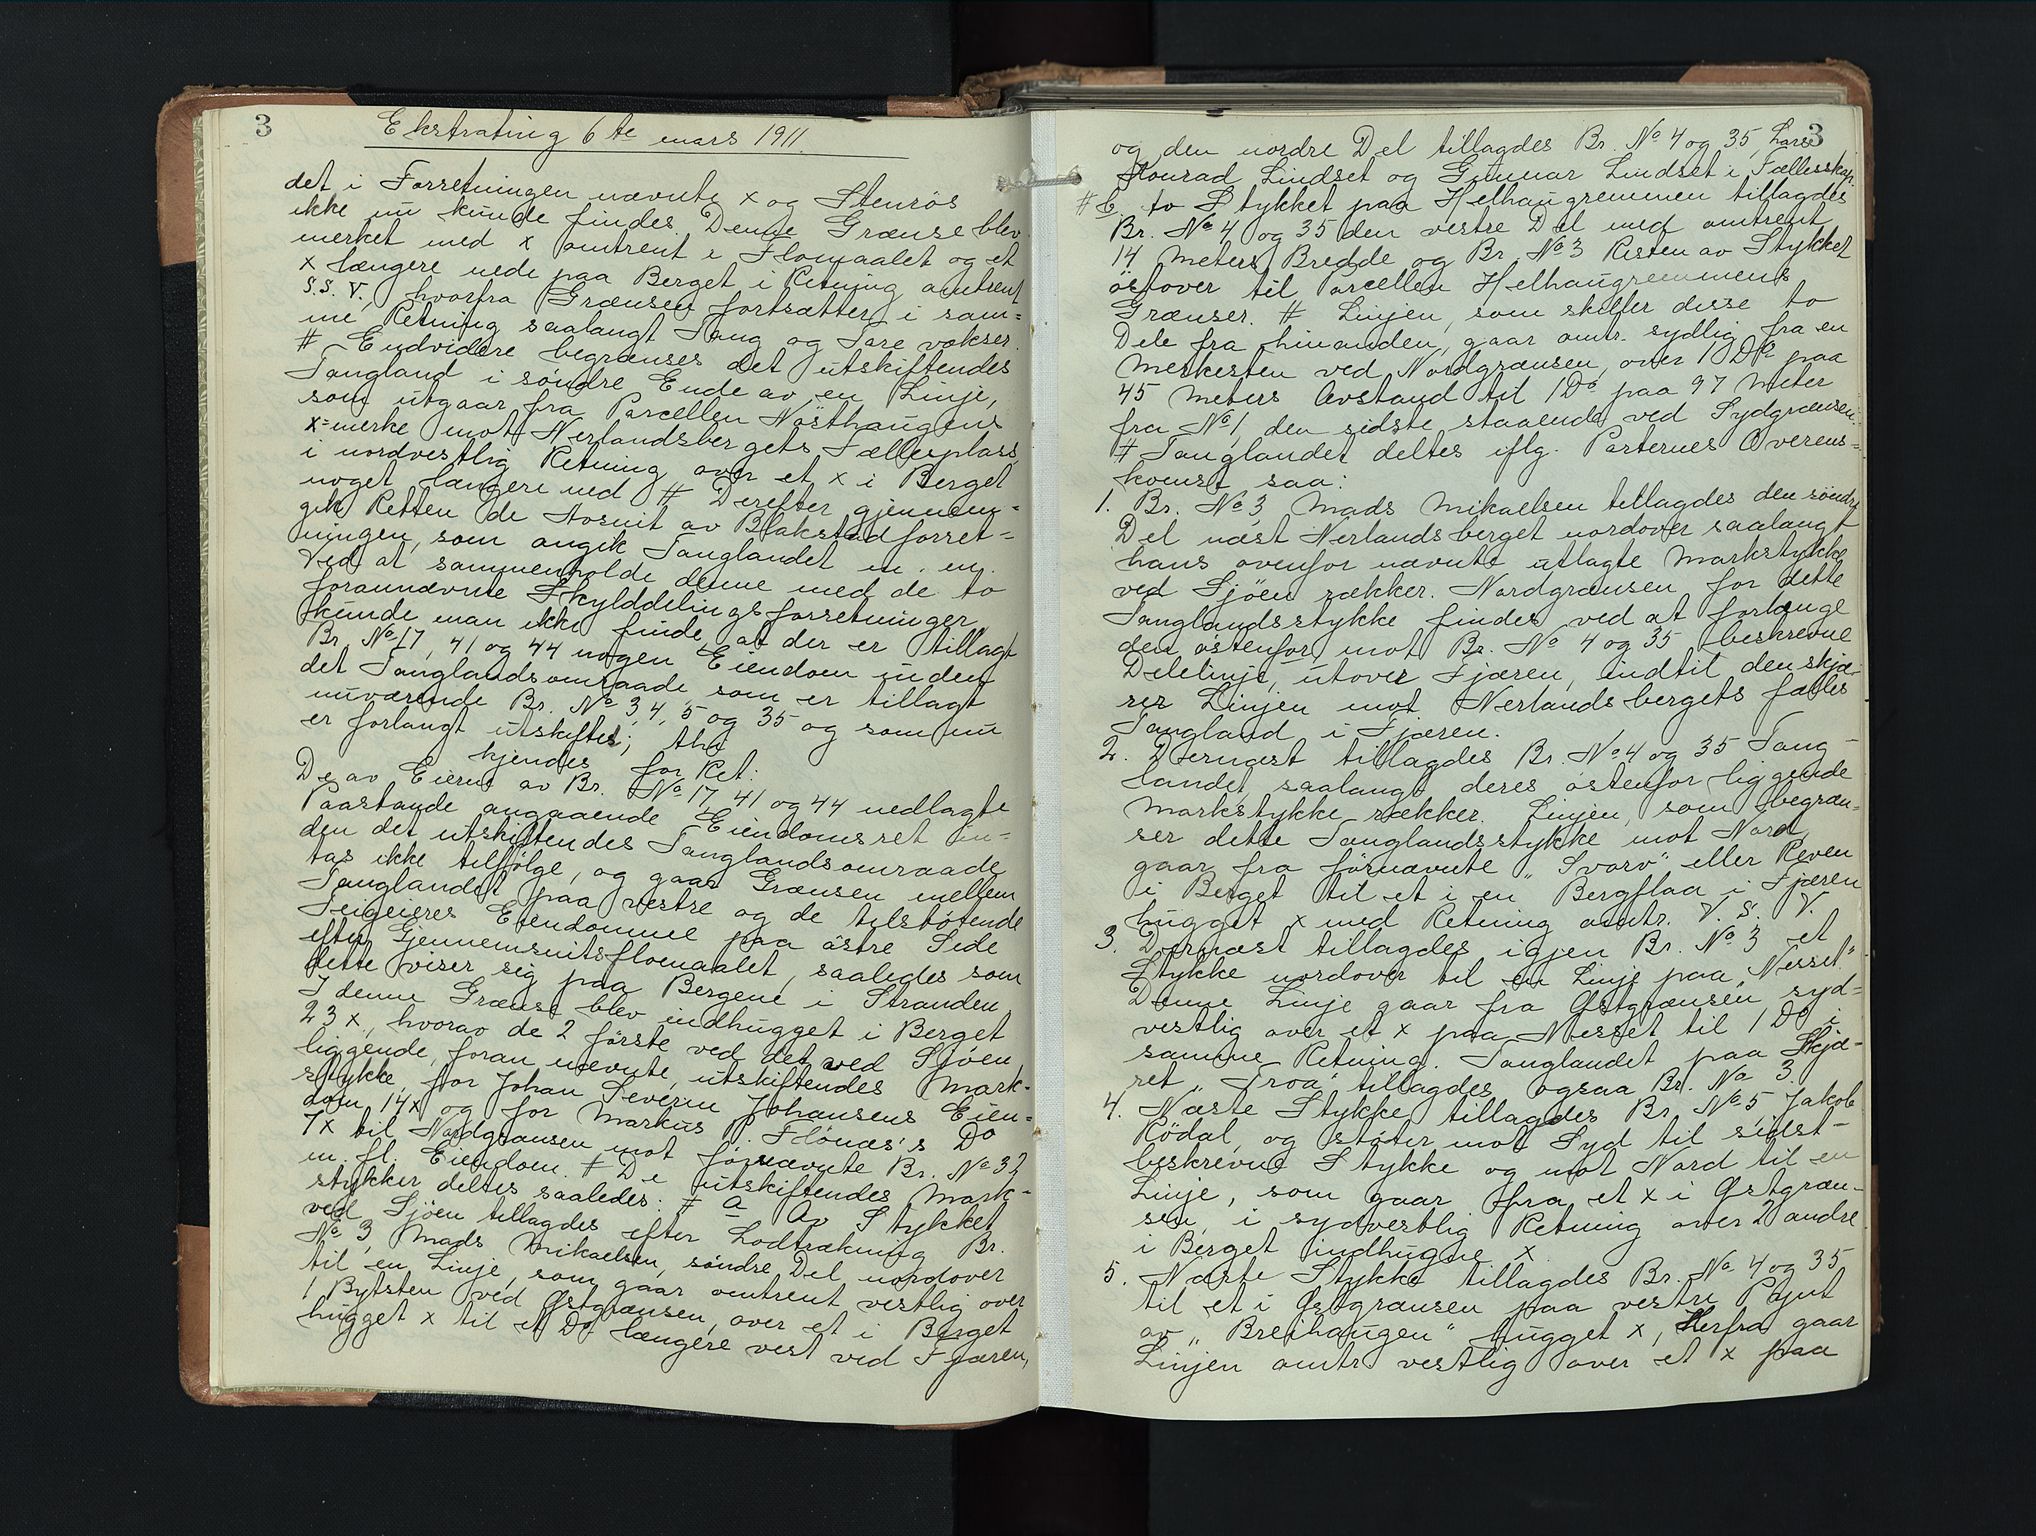 3
Ekstrating 6te mars 1911.
det i Forretningen nævnte x og Stenrös
ikke nu kunde findes. Denne Grænse blev
merket med x omtrent i Flomaalet og et
x længere nede paa Berget i Retning omtrent
S.S.V., hvorfra Grænsen fortsætter i sam=
me Retning saalangt Tang og Tare vokser.
# Endvidere begrænses det utskiftendes
Tangland i søndre Ende av en Linje,
som utgaar fra Parcellen Nösthaugens
x=merke mot Nerlandsbergets Fællesplass
i nordvestlig Retning over et x i Berget
noget længere ned # Derefter gjennem=
gik Retten de Avsnit av Blakstadforret=
ningen, som angik Tanglandet m. m.
Ved at sammenholde denne med de to
forannævnte Skylddelingsforretninger
kunde man ikke finde, at der er tillagt
Br. No 17, 41 og 44 nogen Eiendom inden
det Tanglandsomraade, som er tillagt
nuværende Br. No 3, 4, 5 og 35 og som nu
er forlangt utskiftet; thi
kjendes for Ret:
De av Eierne av Br. No 17, 41 og 44 nedlagte
Paastande angaaende Eiendomsret in=
den det utskiftendes Tanglandsomraade
tas ikke tilfølge, og gaar Grænsen mellem
Tanglandet paa vestre og de tilstøtende
Teigeieres Eiendomme paa østre Side
efter Gjennemsnitsfloemaalet, saaledes som
dette viser sig paa Bergene i Stranden
I denne Grænse blev indhugget i Berget
23 x, hvorav de 2 første ved det ved Sjöen
liggende, foran nævnte, utskiftendes Mark=
stykke, for Johan Severin Johansens Eien=
dom 14x og for Markus P. Flönæs's Do
7x til Nordgrænsen mot förnævnte Br. No 32
m. fl. Eiendom. # De utskiftendes Mark=
stykker deltes saaledes: # a Av Stykket
ved Sjöen tillagdes efter Lodtrækning Br.
No 3, Mads Mikaelsen, søndre Del nordover
til en Linje, som gaar omtrent vestlig over
1 Bytsten ved Østgrænsen, over et i Berget
hugget x til et Do længere vest ved Fjæren,
3
og den nordre Del tillagdes Br. No 4 og 35, Lars
Konrad Lindset og Gunnar Lindset i Fællesskap.
# b. to Stykket paa Helhaugremmen tillagdes
Br. No 4 og 35 den vestre Del med omtrent
14 Meters Bredde og Br. No 3 Resten av Stykket
östover til Parcellen Helhaugremmens
Grænser. # Linjen, som skiller disse to
Dele fra hinanden, gaar omtr. sydlig fra en
Merkesten ved Nordgrænsen, over 1 Do paa
45 Meters Avstand til 1 Do paa 97 Meter
fra No 1, den sidste staaende ved Sydgrænsen.
# Tanglandet deltes iflg. Parternes Overens=
komst saa:
1. Br. No 3, Mads Mikaelsen tillagdes den söndre
Del næst Nerlandsberget nordover saalangt
hans ovenfor nævnte utlagte Markstykke
ved Sjöen rækker. Nordgrænsen for dette
Tanglandsstykke findes ved at forlænge
den östenfor mot Br. No 4 og 35 beskrevne
Delelinje, utover Fjæren, indtil den skjæ=
rer Linjen mot Nerlandsbergets fælles
Tangland i Fjæren.
2. Dernæst tillagdes Br. No 4 og 35 Tang=
landet, saalangt deres östenfor liggende
Markstykke rækker. Linjen, som begræn=
ser dette Tanglandsstykke mot Nord,
gaar fra förnævnte „Svorv" eller Reven
i Berget til et i en Bergflaa i Fjæren
hugget x med Retning omtr. V. S. V.
3. Dernæst tillagdes igjen Br. No 3 et
Stykke nordover til en Linje paa „Nesset"
Denne Linje gaar fra Østgrænsen syd=
vestlig over et x paa Nesset til 1 Do i
samme Retning. Tanglandet paa Skjæ=
ret „Troa" tillagdes ogsaa Br. No 3.
4. Næste Stykke tillagdes Br. No 5 Jakob
Rödal, og stöter mot Syd til sidst=
beskrevne Stykke og mot Nord til en
Linje, som gaar fra et x i Østgræn=
sen, i sydvestlig Retning over 2 andre
i Berget indhugne x.
5. Næste Stykke tillagdes Br. No 4 og 35
til et i Østgrænsen paa vestre Pynt
av „Breihaugen" hugget x, Herfra gaar
Linjen omtr. vestlig over et x paa